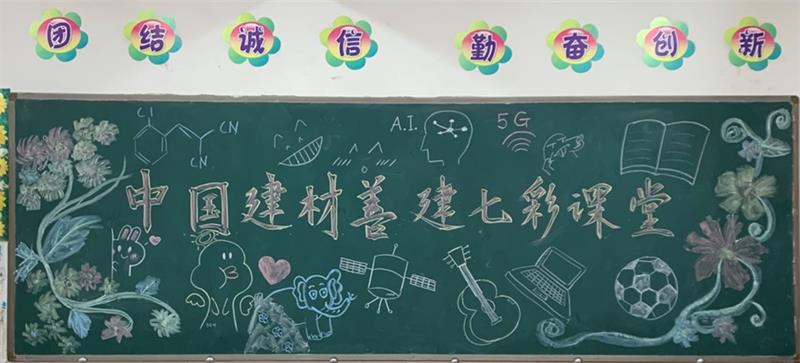 团结诚信勤奋创新
Cl
CN
CN
A.I.
5G
中国建材善建七彩课堂